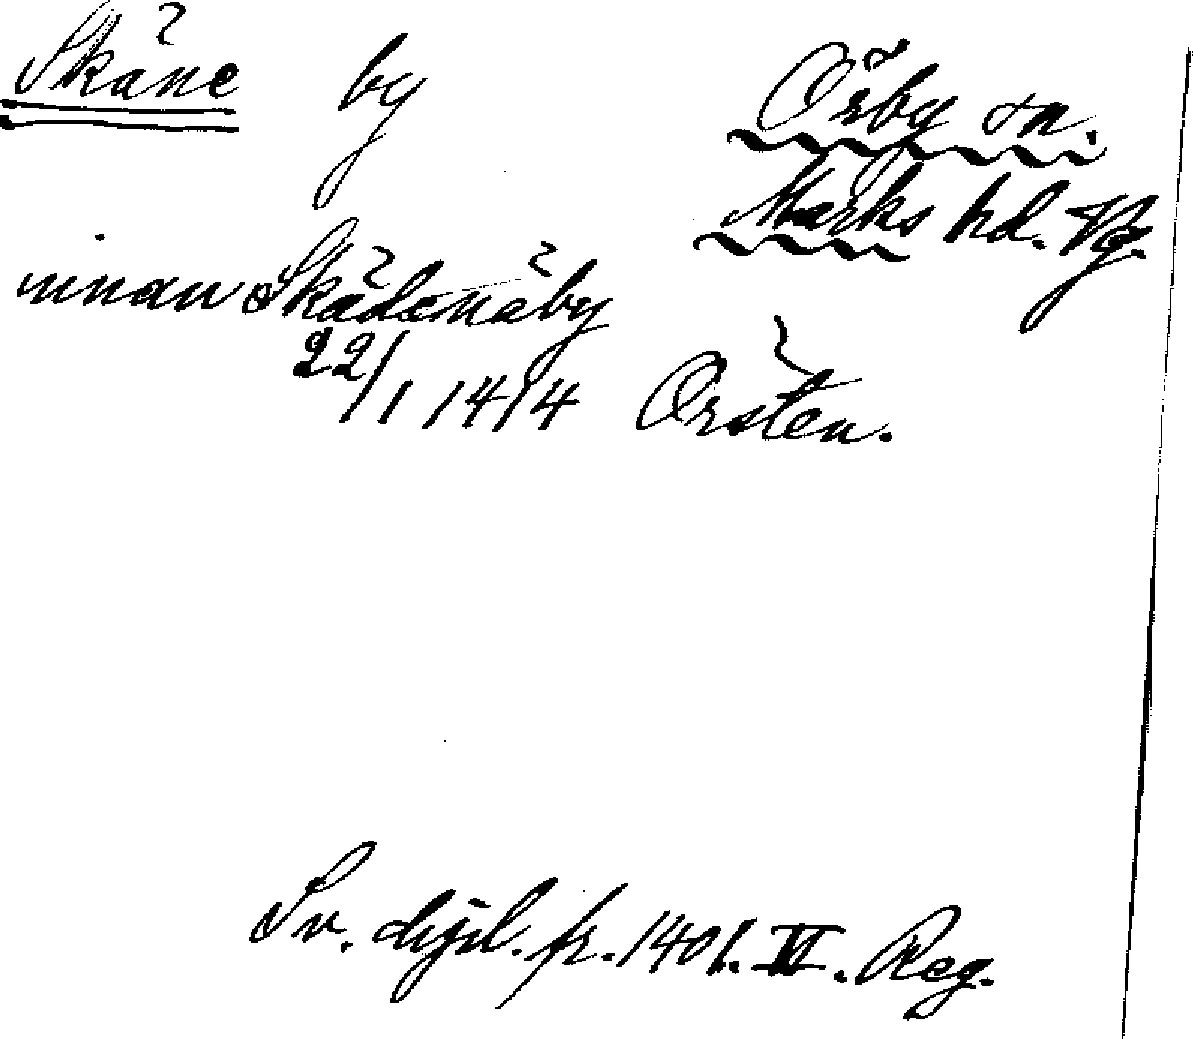 Skåne by Örby sn.
Marks hd. Vg.
innan Skädenäby
22/1 1414 Örsten.
Sv. dipl. fr. 1401. VI. Reg.